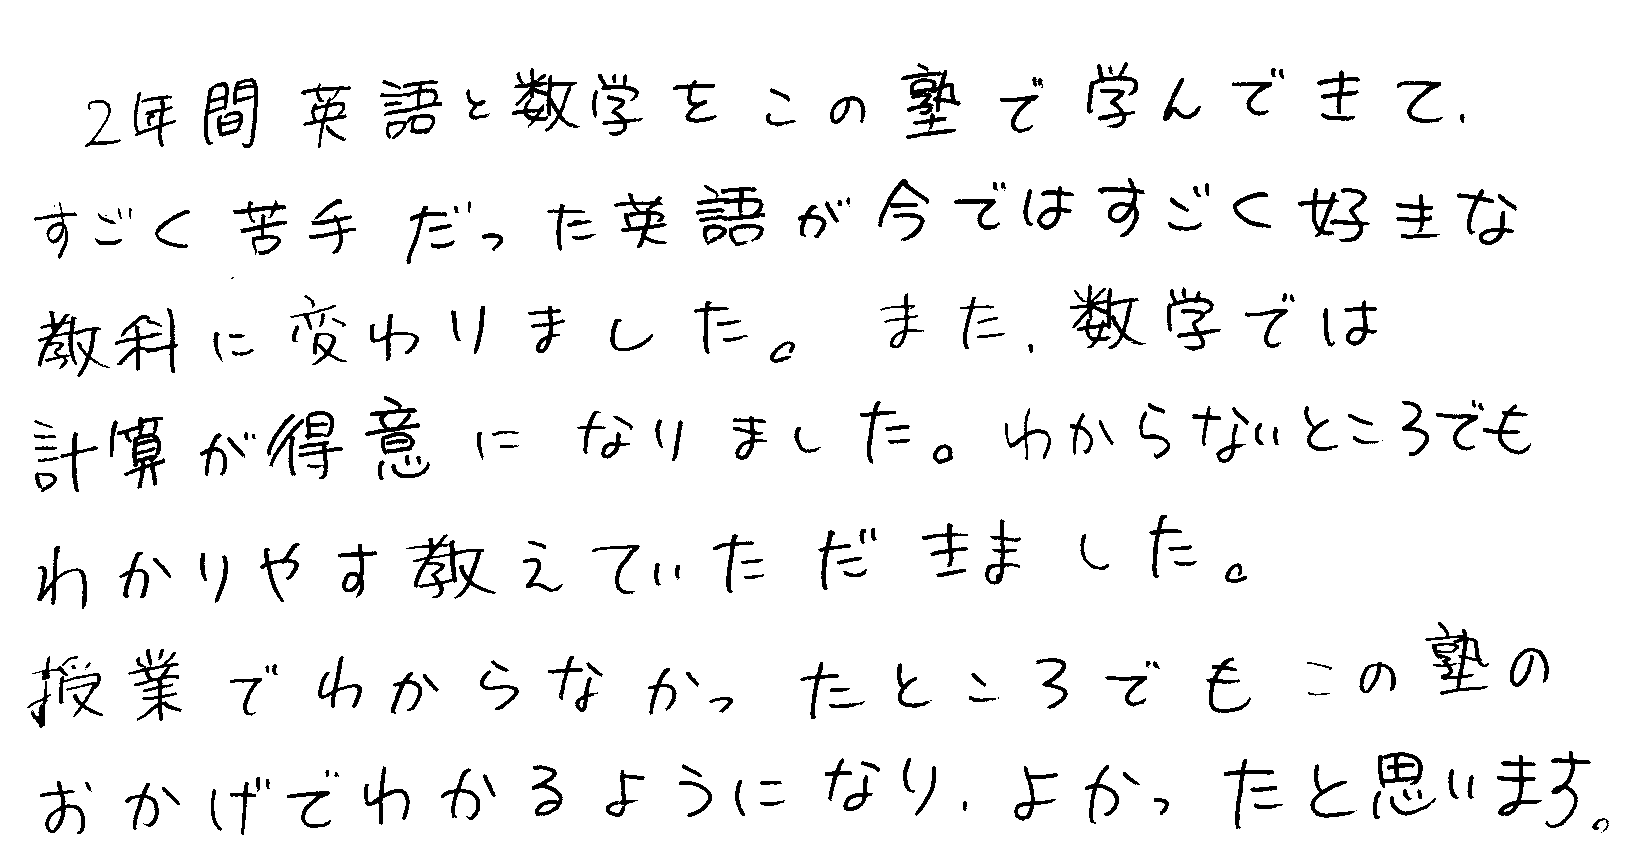 2年間英語と数学をこの塾で学んできて、
すごく苦手だった英語が今ではすごく好きな
教科に変わりました。また、数学では
計算が得意になりました。わからないところでも
わかりやす教えていただきました。
授業でわからなかったところでもこの塾の
おかげでわかるようになり、よかったと思います。